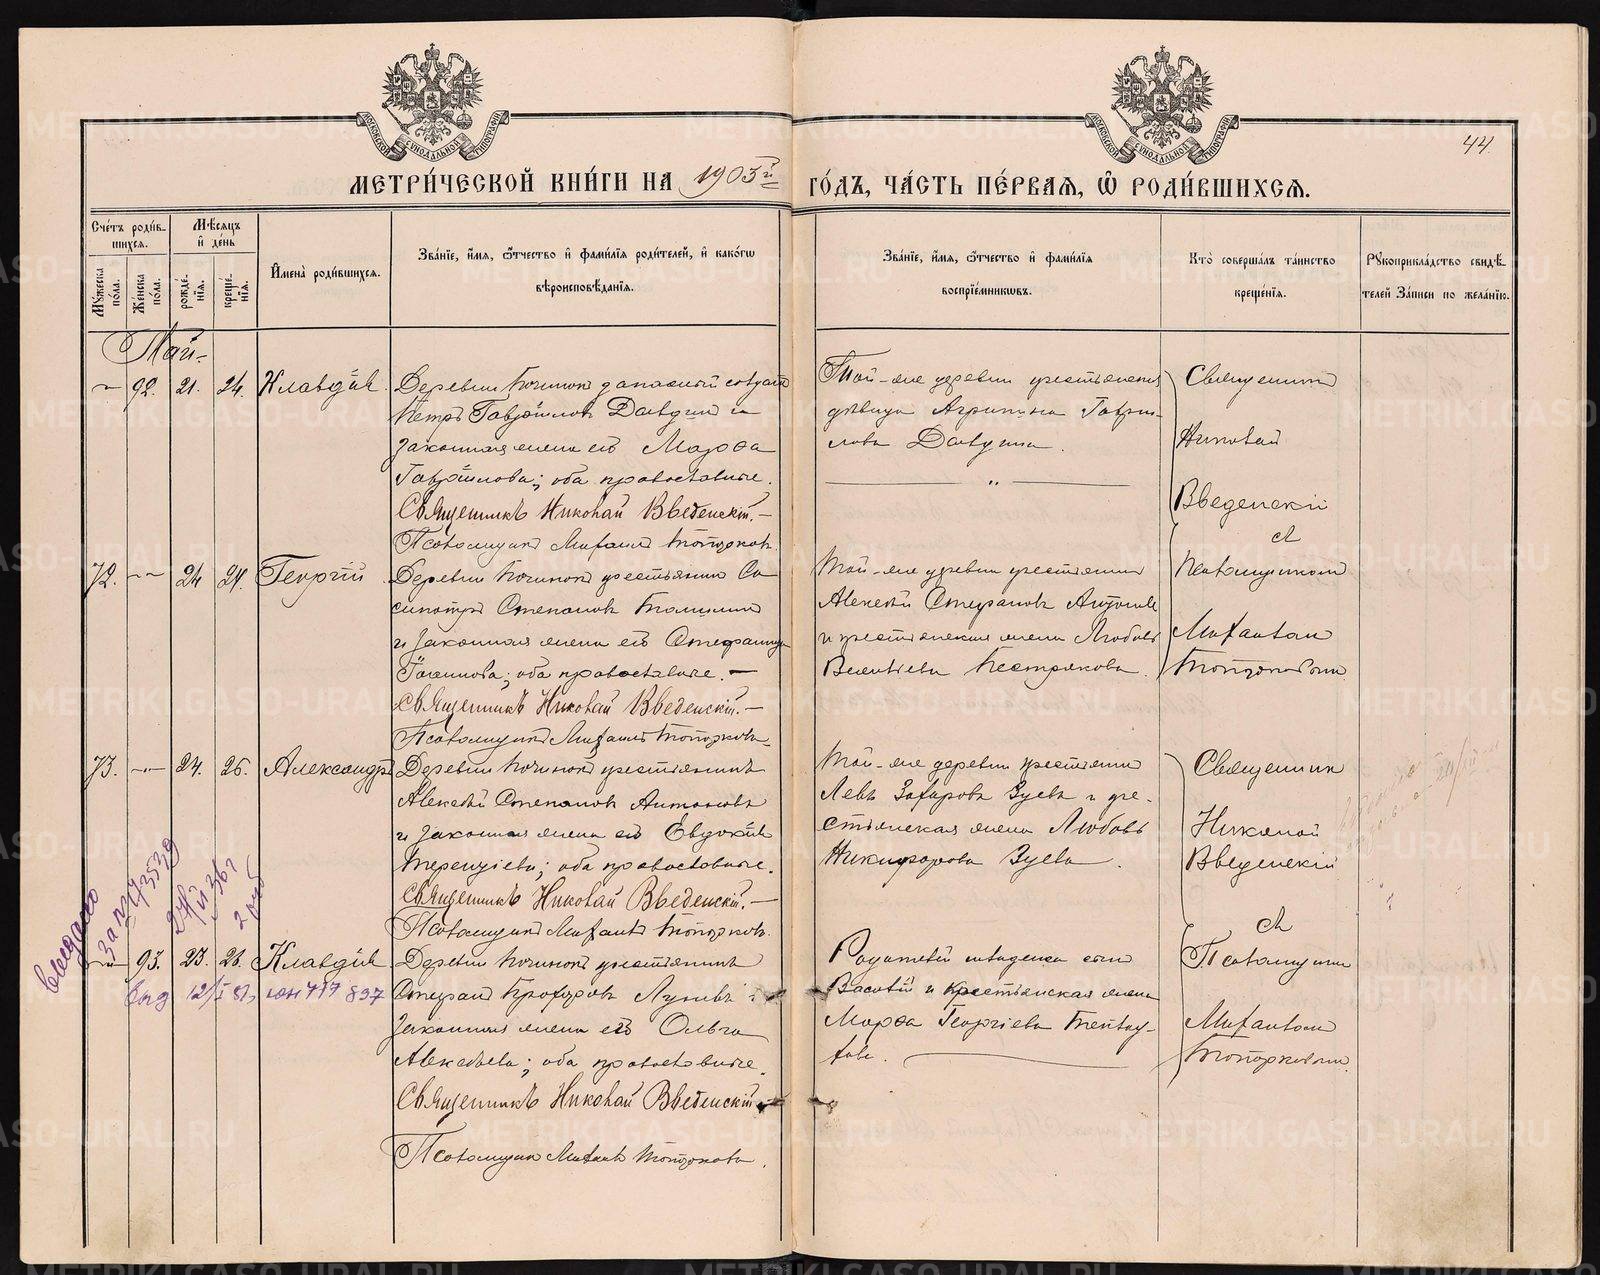 44
МЕТРИ́ЧЕСКОЙ КНИ́ГИ НА 1903й ГО́ДЪ, ЧА́СТЬ ПЕ́РВАЯ, Ѽ РОДИ́ВШИХСЯ.
Сче́тъ роди́в-
шихся.
Мужеска по́ла.
Же́нска по́ла.
Мѣ́сяцъ и де́нь
рожде́-
нїя.
креще́-
нїя.
И́мена̀ роди́вшихся.
Зва́нїе, и́мя, ѻ́тчество и фами́лїя роди́телей, и како́гѡ
вѣроисповѣ́данїя.
Зва́нїе, и́мя, ѻ́тчество и фами́лїя
воспрїе́мникѡвъ.
Кто̀ соверша́лъ та́инство
креще́нїя.
Рукоприкла́дство свидѣ́-
телей за́писи по жела́нїю.
Май-
92. 21. 24. Клавдія
Деревни Починокъ запасный солдатъ
Петръ Гаврiиловъ и
законная жена его Марѳа
Гаврiилова; оба православные.
Священникъ Николай Введенскій.-
Псаломщикъ Михаилъ Топорковъ.
Той-же деревни крестьянская
дѣвица Агрипина Гаврiи-
лова
Священникъ
Николай
Введенскій
съ
Псаломщикомъ
Михаиломъ
Топорковымъ
72. 24. 27. Георгій
Деревни Починокъ крестьянинъ Со
сипатръ Степановъ
и законная жена его Стефанида
оба православные.-
Священникъ Николай Введенскій.-
Псаломщикъ Михаилъ Топорковъ.
Той-же деревни крестьянинъ
Алексѣй Стефановъ
и крестьянская жена Любовь
Пестрякова.
73. 24. 26. Александръ
Деревни Починокъ крестьянинъ
Алексѣй Степановъ Антоновъ
и законная жена его Евдокія
Терентіева; оба православные.
Священникъ Николай Введенскій.-
Псаломщикъ Михаилъ Топорковъ.
Той-же деревни крестьянинъ
Левъ Захаровъ Зуевъ и кре-
стьянская жена Любовь
Никифорова Зуева.
Священник
Николай
Введенскій
съ
Псаломщикомъ
Михаиломъ
Топорковымъ.
выдано
за № 173539
2 раб
93. 23. 26. Клавдія
897
Деревни Починокъ крестьянинъ
Стефанъ Прохоровъ и
законная жена его Ольга
Алексѣева; оба православные.
Священникъ Николай Введенскій.-
Псаломщикъ Михаилъ Топорковъ.
Родителей младенца сынъ
Василій и крестьянская жена
Марѳа Георгіева